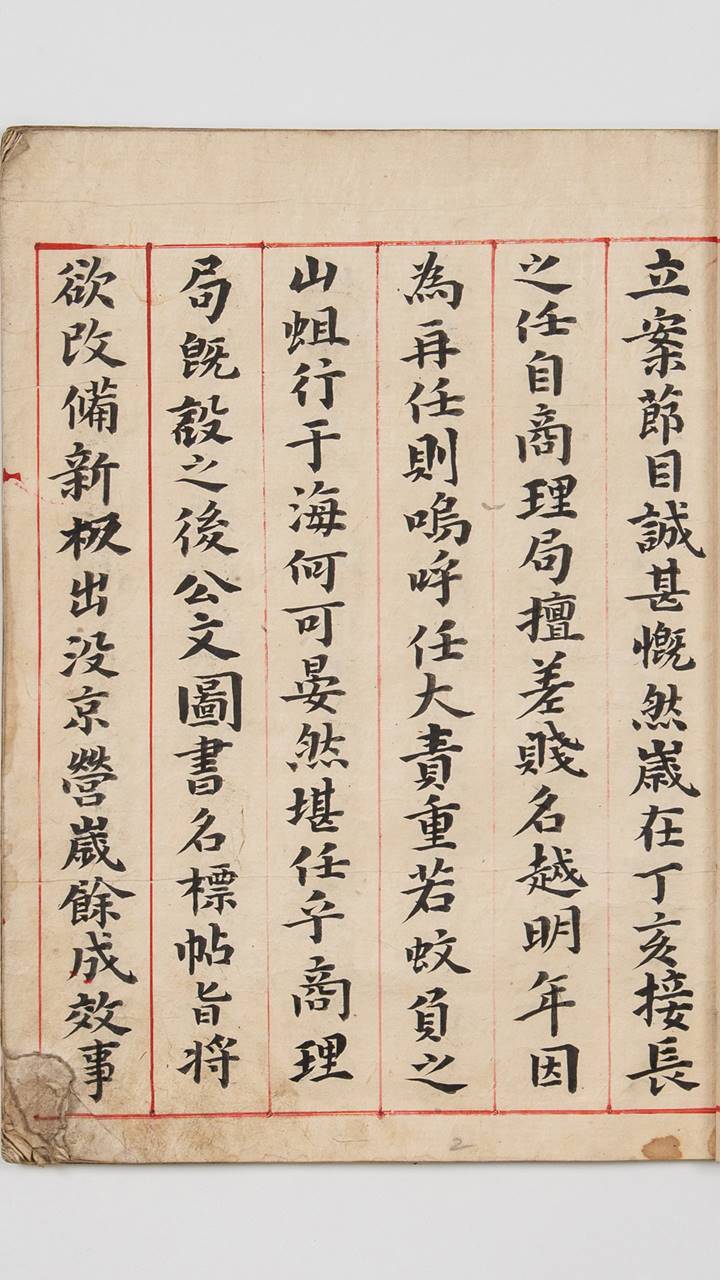 立案節目誠甚慨然歲在丁亥接長
之任自商理局擅差賤名越明年因
為再任則嗚呼任大責重若蚊負之
山蛆行于海何可晏然堪任乎商理
局既設之後公文圖書名標帖旨將
欲改備新板出沒京營歲餘成效事
2